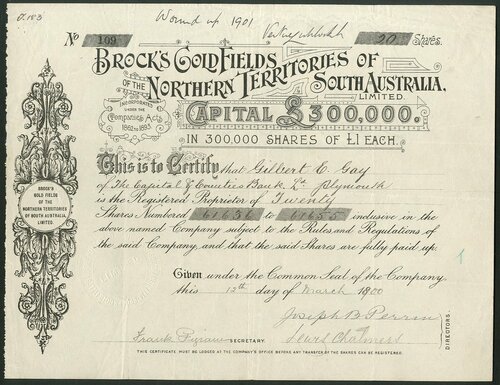 Wound up 1901
No 109
20 Shares.
BROCK'S GOLDFIELDS
OF THE NORTHERN TERRITORIES OF
SOUTH AUSTRALIA,
LIMITED.
INCORPORATED
UNDER THE
Companies Acts,
1862 to 1893.
CAPITAL £300,000.
IN 300,000 SHARES OF £1 EACH.
This is to Certify that Gilbert E. Gay
of The Capital & Counties Bank Ld Plymouth
is the Registered Proprietor of Twenty
Shares Numbered 61636 to 61655 inclusive in the
above named Company subject to the Rules and Regulations of
the said Company and that the said Shares are fully paid up.
Given under the Common Seal of the Company,
this 12th day of March 1900
Joseph B Perrin
Lewis Chalmers
DIRECTORS.
Frank SECRETARY.
THIS CERTIFICATE MUST BE LODGED AT THE COMPANY'S OFFICE BEFORE ANY TRANSFER OF THE SHARES CAN BE REGISTERED.
BROCK'S
GOLD FIELDS
OF THE
NORTHERN TERRITORIES
OF SOUTH AUSTRALIA,
LIMITED.